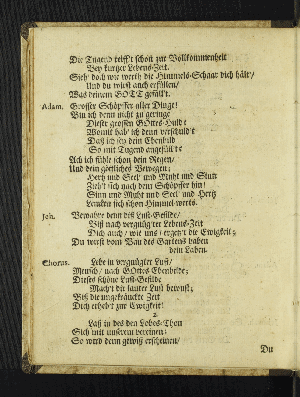 Die Tugend reifft schon zur Vollkommenheit
Bey kurtzer Lebens-Zeit.
Sieh/ doch wie werth die Himmels-Schaar dich hält/
Und du wirst auch erfüllen/
Was deinem GOTT gefällt.
Adam. Grosser Schöpffer aller Dinge!
Bin ich denn nicht zu geringe
Dieser grossen GOttes-Huld?
Womit hab' ich denn verschuldt
Daß ich sey dein Ebenbild
So mit Tugend angefüllt?
Ach ich fühle schon dein Regen/
Und dein göttliches Bewegen;
Hertz und Seel' und Muht und Sinn
Zieh't sich nach dem Schöpffer hin/
Sinn und Muht und Seel' und Hertz
Lencken sich schon Himmel-werts.
Joh. Bewahre denn diß Lust-Gefilde/
Biß nach vergnügter Lebens-Zeit
Dich auch/ wie uns/ ergetzt die Ewigkeit;
Du wirst vom Bau des Gartens haben
dein Laben.
Chorus. Lebe in vergnügter Lust/
Mensch/ nach GOttes Ebenbilde;
Dieses schöne Lust-Gefilde
Mach't dir lauter Lust bewust;
Biß die ungekränckte Zeit
Dich erheb't zur Ewigkeit!
2.
Laß in des den Lobes-Thon
Sich mit unserm vereinen;
So wird denn gewiß erscheinen/
Du